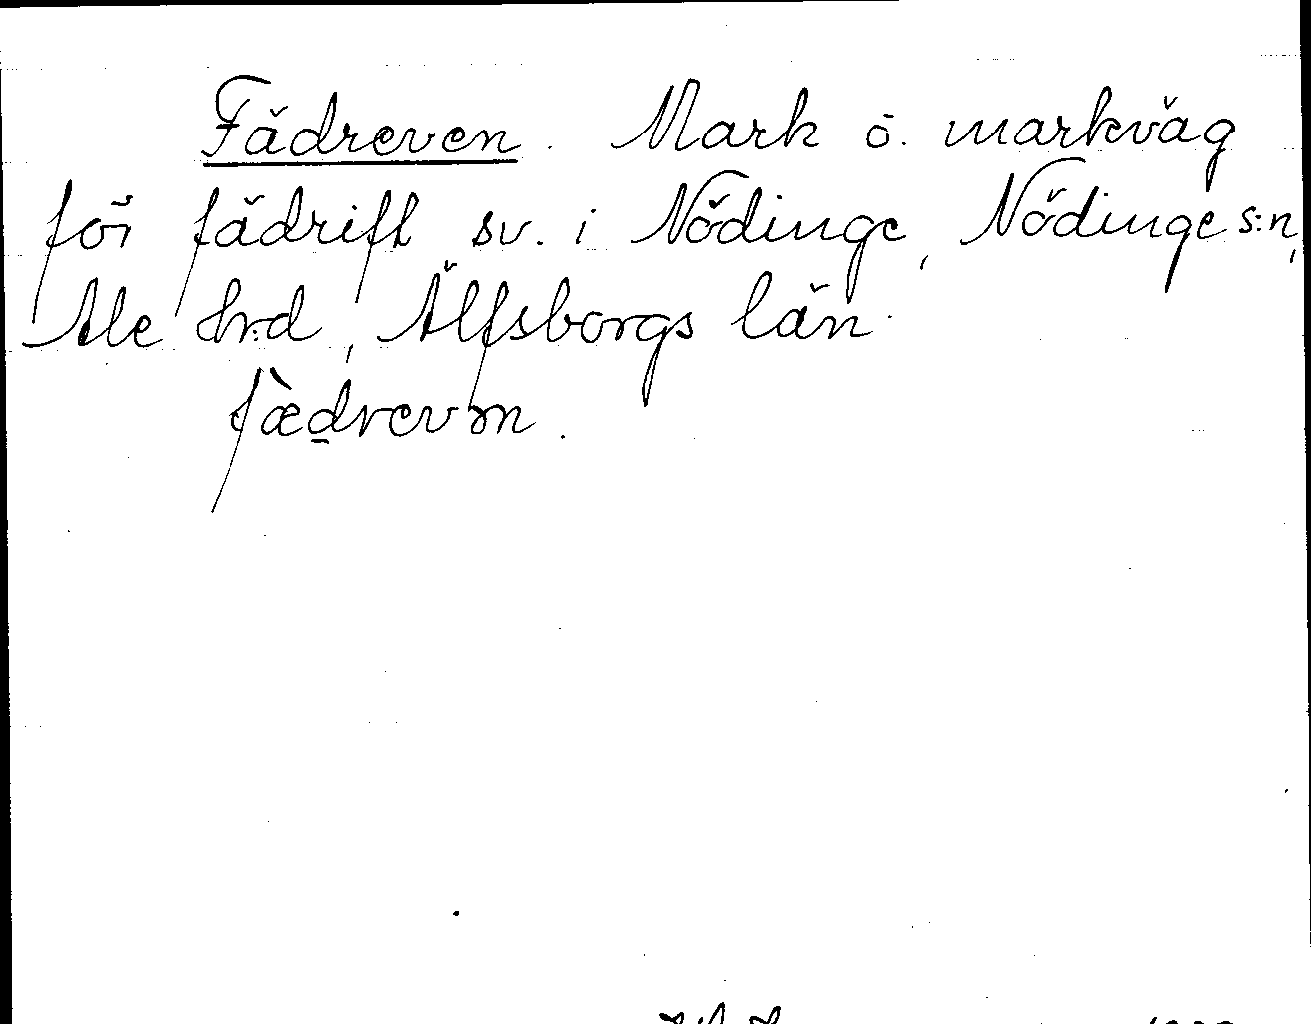 Fädreven. Mark o. markväg
för fädrift sv. i Nödinge, Nödinge s:n,
Ale hrd, Älfsborgs län.
fæ̀drevm.